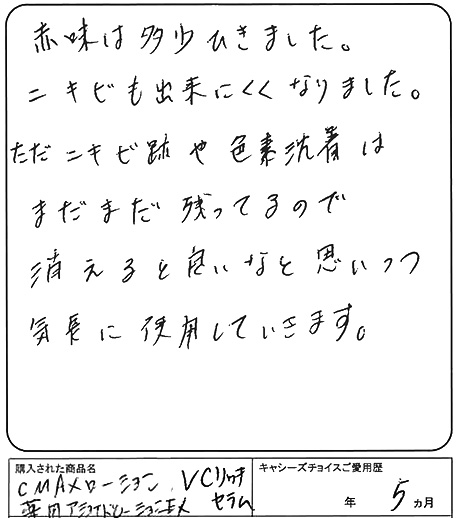 赤味は多少ひきました。
ニキビも出来にくくなりました。
ただニキビ跡や色素沈着は
まだまだ残ってるので
消えると良いなと思いつつ
気長に使用していきます。
購入された商品名
CMAXローション、VCリッチ
薬用 セラム
キャシーズチョイスご愛用歴
年 5ヵ月